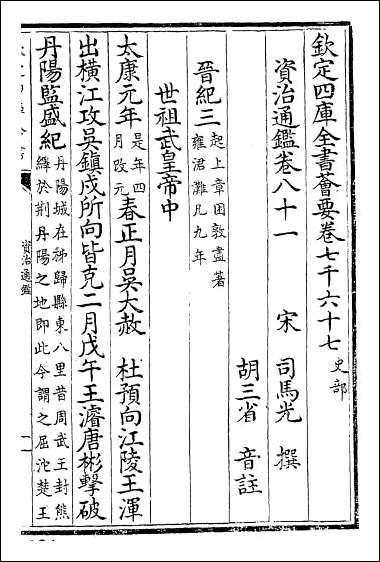 欽定四庫全書薈要卷七千六十七 史部
資治通鑑卷八十一
宋 司馬光 撰
胡三省 音註
晉紀三 起上章困敦盡著
雍涒灘凡九年
世祖武皇帝中
太康元年 是年四
月改元 春正月吳大赦 杜預向江陵王渾
出橫江攻吳鎮戍所向皆克二月戊午王濬唐彬擊破
丹陽監盛紀 丹陽城在秭歸縣東八里昔周武王封熊
繹於荆丹陽之地即此今謂之屈沱楚王
資治通鑑